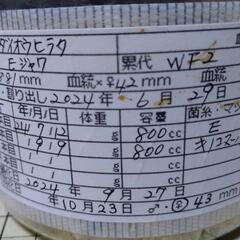 ダイオウヒラタ
Eジャワ 累代 WF2
81mm 血統×♀42mm 血統
割り出し2024年 6月 29日
年/月/日 体重 容量 菌糸・マッ
24 7 12 g 800cc E
1 9 19 g 800cc キノコマ
g cc
g cc
2024年 9月27日
年10月23日 ♂・♀ 43mm